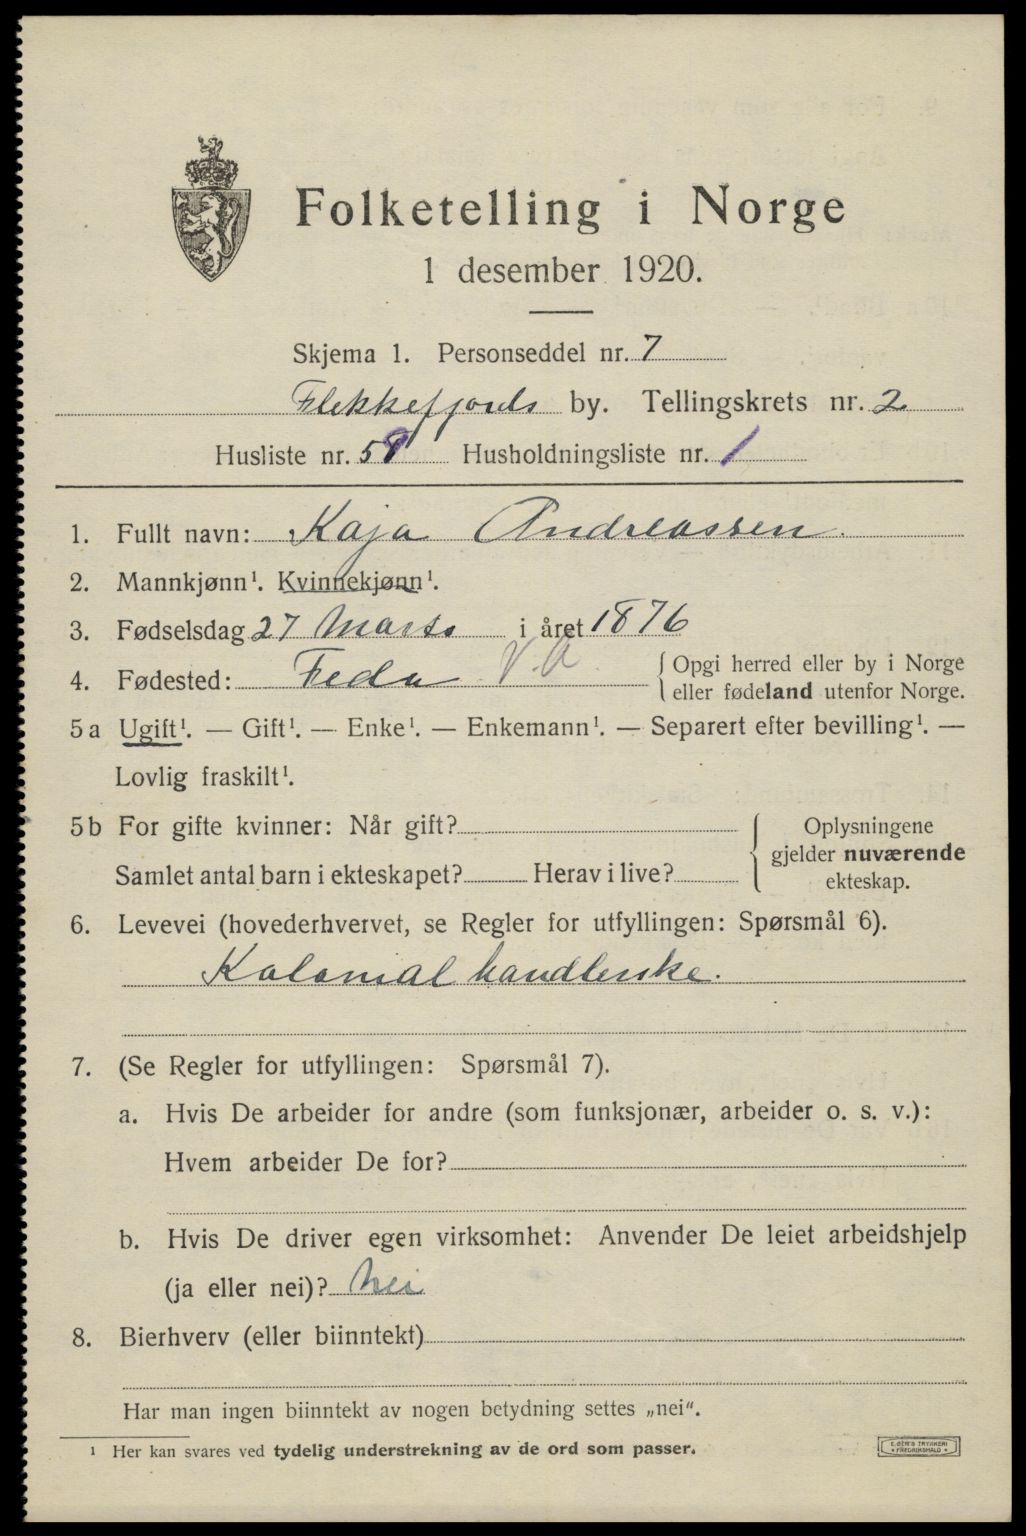 Folketelling i Norge
1 desember 1920.
Skjema 1. Personseddel nr. 7
Flekkefjords by. Tellingskrets nr. 2
Husliste nr. 58 Husholdningsliste nr. 1
1. Fullt navn: Kaja Andreassen.
2. Mannkjønn¹. Kvinnekjønn¹.
3. Fødselsdag 27 Marts i året 1876
4. Fødested: Feda V.A { Opgi herred eller by i Norge
eller fødeland utenfor Norge.
5a Ugift¹. — Gift¹. — Enke¹. — Enkemann¹. — Separert efter bevilling¹. —
Lovlig fraskilt¹.
5b For gifte kvinner: Når gift? { Oplysningene
gjelder nuværende
ekteskap.
Samlet antal barn i ekteskapet? Herav i live?
6. Levevei (hovederhvervet, se Regler for utfyllingen: Spørsmål 6).
Kolonial handlerske.
7. (Se Regler for utfyllingen: Spørsmål 7).
a. Hvis De arbeider for andre (som funksjonær, arbeider o. s. v.):
Hvem arbeider De for?
b. Hvis De driver egen virksomhet: Anvender De leiet arbeidshjelp
(ja eller nei)? Nei
8. Bierhverv (eller biinntekt)
Har man ingen biinntekt av nogen betydning settes „nei".
¹ Her kan svares ved tydelig understrekning av de ord som passer.
FREDRIKSHALD